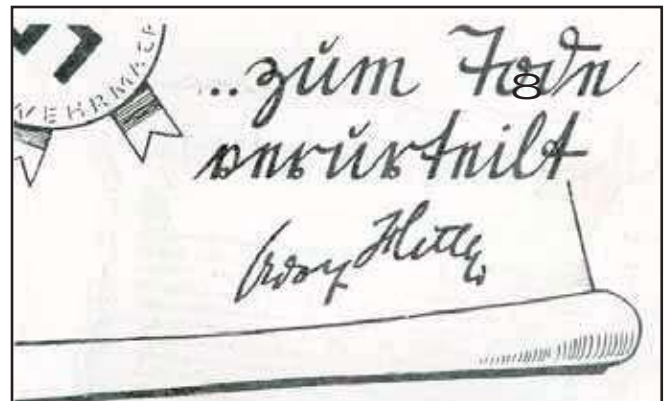 WEHRMACH
..zum Tode
8
verurteilt
Adolf Hitler